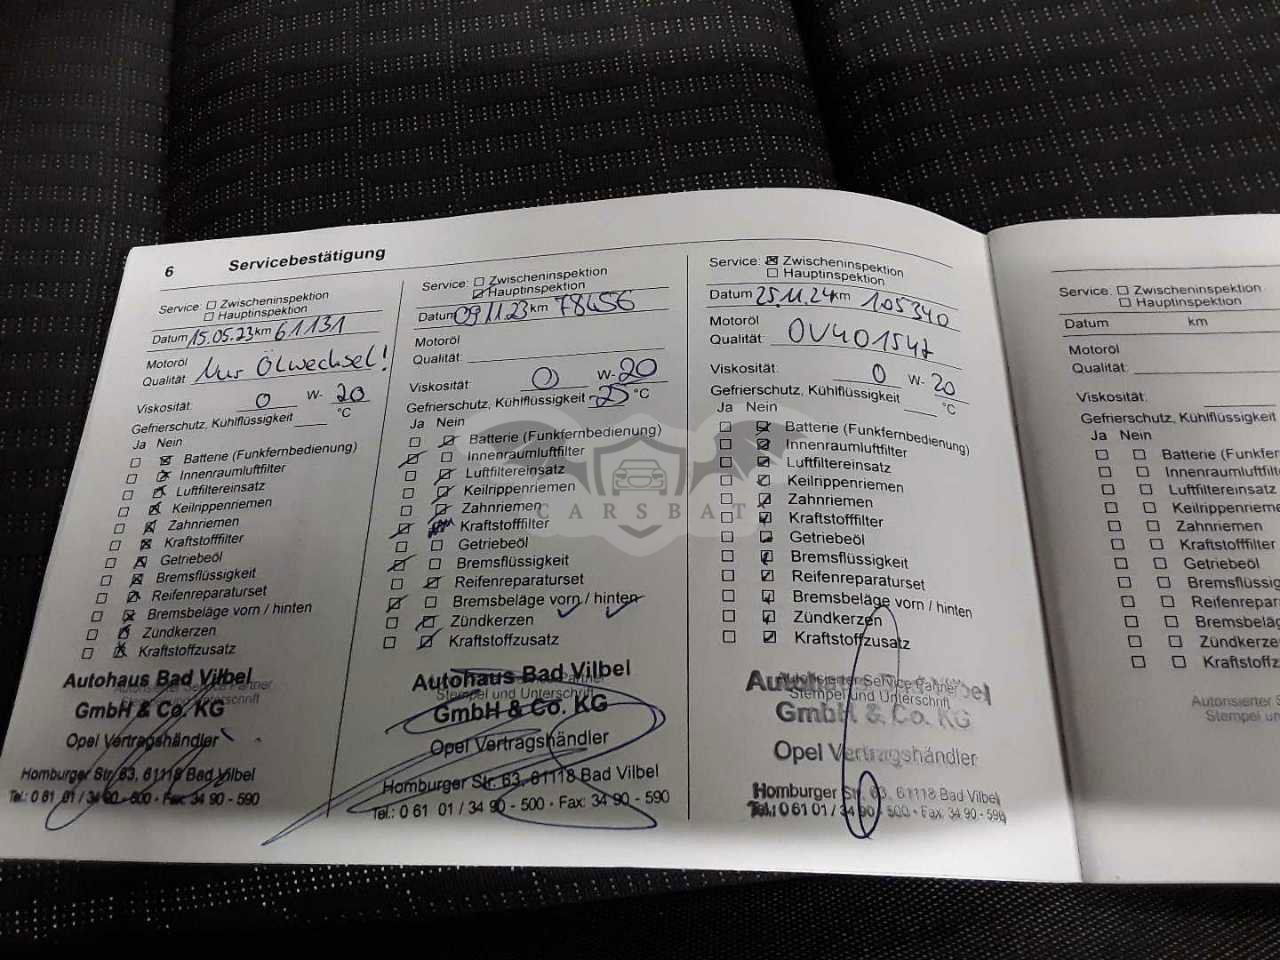 6 Servicebestätigung
Service: Zwischeninspektion
Hauptinspektion
Datum 15.05.23 km 61131
Motoröl
Qualität Nur Ölwechsel!
Viskosität: 0 W- 20
Gefrierschutz, Kühlflüssigkeit °C
Ja Nein
Batterie (Funkfernbedienung)
Innenraumluftfilter
Luftfiltereinsatz
Keilrippenriemen
Zahnriemen
Kraftstofffilter
Getriebeöl
Bremsflüssigkeit
Reifenreparaturset
Bremsbeläge vorn / hinten
Zündkerzen
Kraftstoffzusatz
Autohaus Bad Vilbel
Autorisierter Service Partner
Stempel und Unterschrift
GmbH & Co. KG
Opel Vertragshändler
Homburger Str. 63, 61118 Bad Vilbel
Tel.: 0 61 01 / 34 90 - 500 · Fax: 34 90 - 590
Service: Zwischeninspektion
Hauptinspektion
Datum 09.11.23 km 78456
Motoröl
Qualität:
Viskosität: 0 W- 20
Gefrierschutz, Kühlflüssigkeit -25 °C
Ja Nein
Batterie (Funkfernbedienung)
Innenraumluftfilter
Luftfiltereinsatz
Keilrippenriemen
Zahnriemen
Kraftstofffilter
Getriebeöl
Bremsflüssigkeit
Reifenreparaturset
Bremsbeläge vorn / hinten
Zündkerzen
Kraftstoffzusatz
Autohaus Bad Vilbel
Stempel und Unterschrift
GmbH & Co. KG
Opel Vertragshändler
Homburger Str. 63, 61118 Bad Vilbel
Tel.: 0 61 01 / 34 90 - 500 · Fax: 34 90 - 590
Service: Zwischeninspektion
Hauptinspektion
Datum 25.11.24 km 105340
Motoröl
Qualität: OV401547
Viskosität: 0 W- 20
Gefrierschutz, Kühlflüssigkeit °C
Ja Nein
Batterie (Funkfernbedienung)
Innenraumluftfilter
Luftfiltereinsatz
Keilrippenriemen
Zahnriemen
Kraftstofffilter
Getriebeöl
Bremsflüssigkeit
Reifenreparaturset
Bremsbeläge vorn / hinten
Zündkerzen
Kraftstoffzusatz
Autorisierter Service Partner
Stempel und Unterschrift
GmbH & Co. KG
Opel Vertragshändler
Homburger Str. 63, 61118 Bad Vilbel
Tel.: 0 61 01 / 34 90 - 500 · Fax: 34 90 - 590
Service: Zwischeninspektion
Hauptinspektion
Datum km
Motoröl
Qualität:
Viskosität:
Gefrierschutz, Kühlflüssigkeit
Ja Nein
Batterie (Funkfer
Innenraumluftfilte
Luftfiltereinsatz
Keilrippenriemen
Zahnriemen
Kraftstofffilter
Getriebeöl
Bremsflüssig
Reifenrepara
Bremsbeläg
Zündkerze
Kraftstoffz
Autorisierter S
Stempel un
CARSBAT